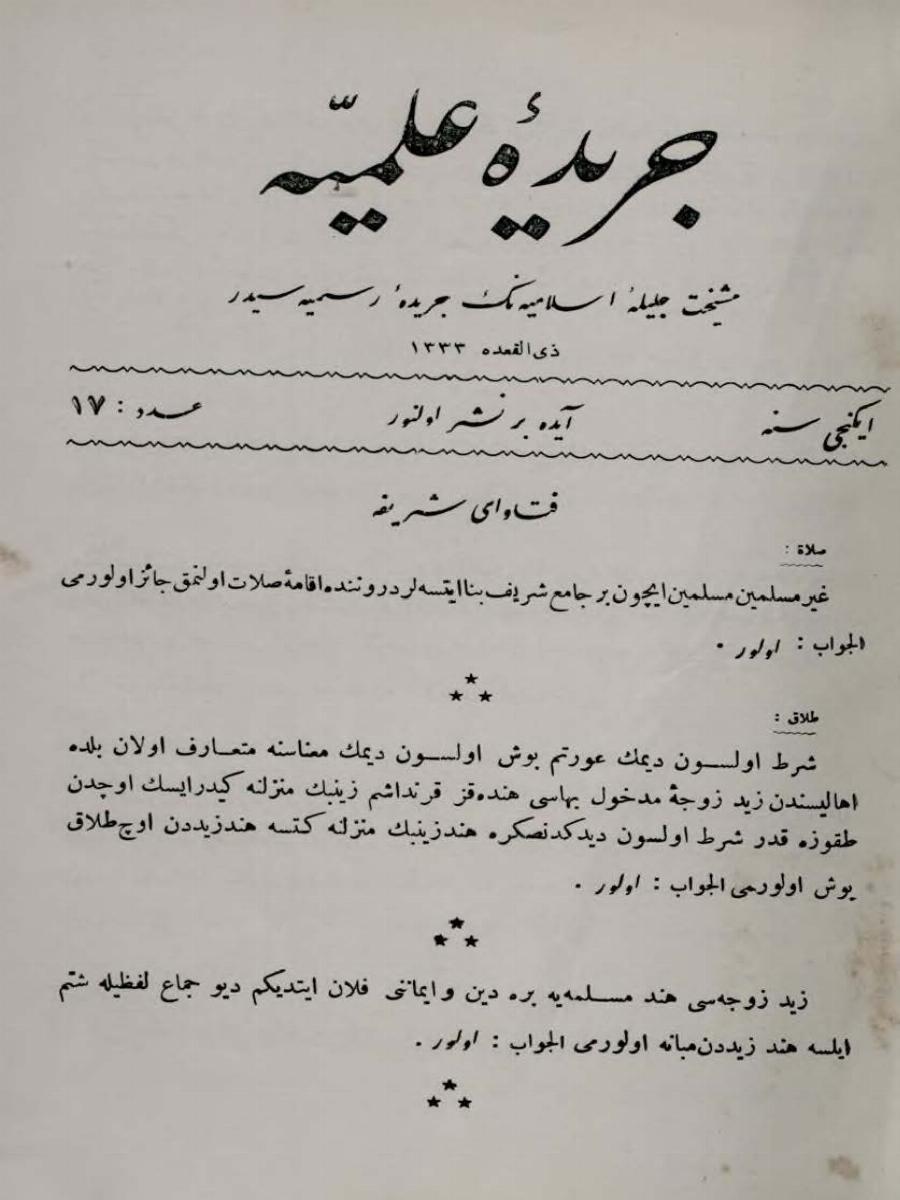 جريدۀ علميّه
مشيخت جليلۀ اسلاميه نك جريدۀ رسميه سيدر
ذى القعده ١٣٣٣
ايكنجى سنه آيده بر نشر اولنور عدد : ١٧
فتاواى شريفه
صلاة :
غير مسلمين مسلمين ايچون بر جامع شريف بنا ايتسه لر دروننده اقامۀ صلات اولنمق جائز اولورمى
الجواب : اولور .
طلاق :
شرط اولسون ديمك عورتم بوش اولسون ديمك معناسنه متعارف اولان بلده
اهاليسندن زيد زوجۀ مدخول بهاسى هنده قز قرنداشم زينبك منزلنه كيدرايسك اوچدن
طقوزه قدر شرط اولسون ديدكدنصكره هندزينبك منزلنه كتسه هندزيددن اوچ طلاق
بوش اولورمى الجواب : اولور .
زيد زوجه سى هند مسلمه يه بره دين و ايمانى فلان ايتديكم ديو جماع لفظيله شتم
ايلسه هند زيددن مبانه اولورمى الجواب : اولور .